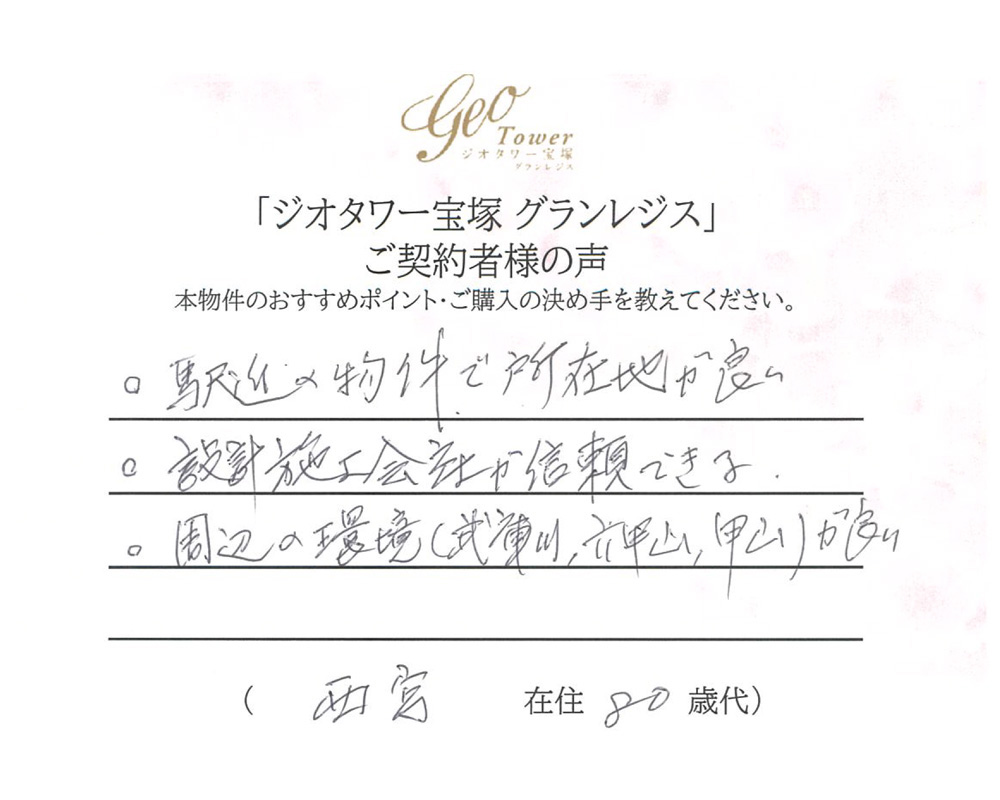 Geo
Tower
ジオタワー宝塚
グランレジス
「ジオタワー宝塚 グランレジス」
ご契約者様の声
本物件のおすすめポイント・ご購入の決め手を教えてください。
○ 駅近の物件で所在地が良い
○ 設計施工会社が信頼できる.
○ 周辺の環境(武庫川,六甲山,甲山)が良い
( 西宮 在住 80 歳代)